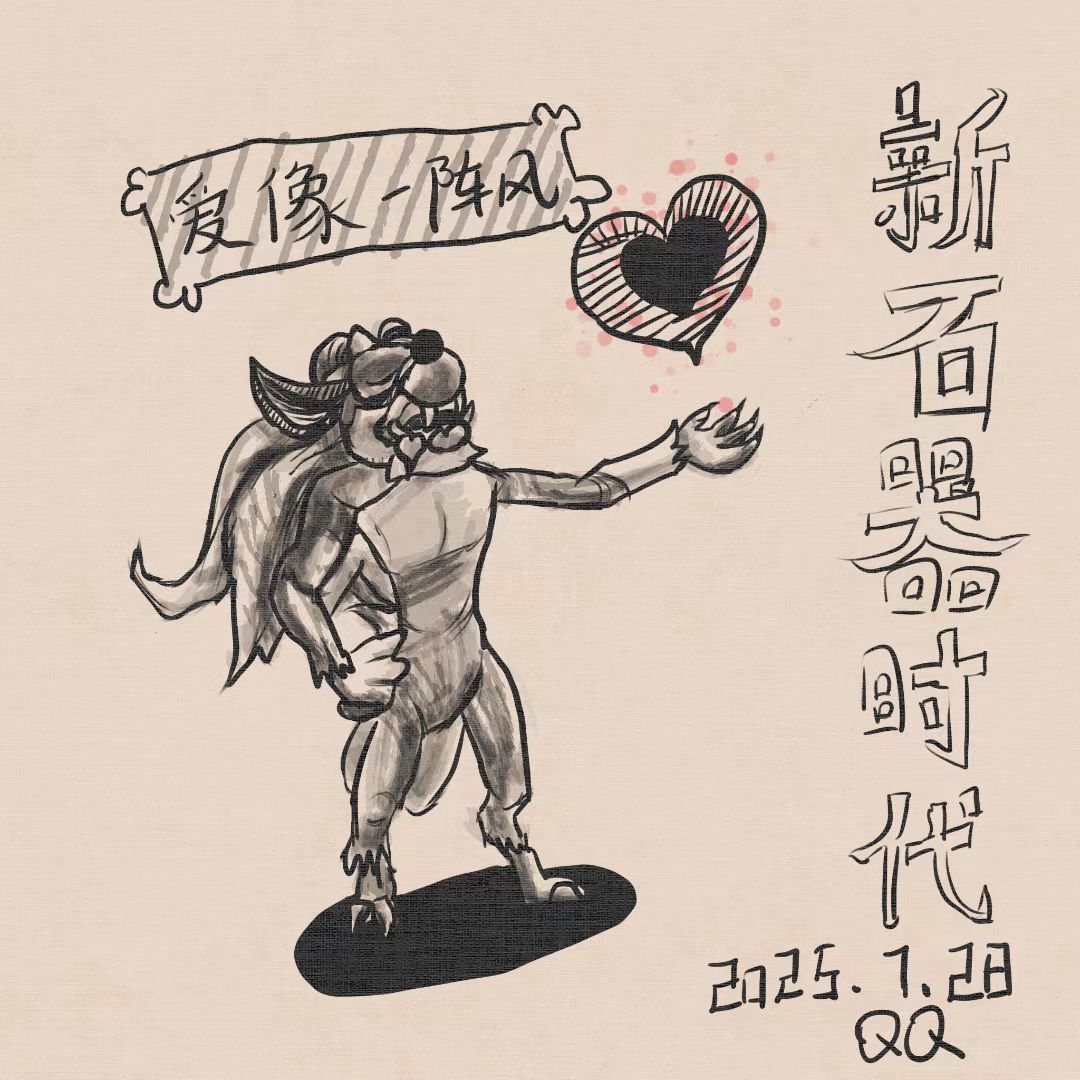 爱像一阵风
新召器时代
2025.7.28
QQ